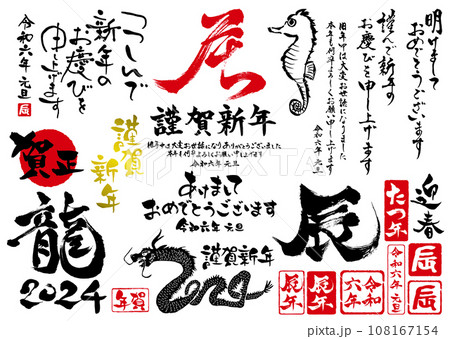 明けまして
おめでとうございます
謹んで新年の
お慶びを申し上げます
旧年中は大変お世話になりました
本年も何卒よろしくお願い申し上げます
令和六年 元旦
辰
謹賀新年
旧年中は大変お世話になりありがとうございました
本年も何卒よろしくお願い申し上げます
令和六年 元旦
つつしんで
新年の
お慶びを
申し上げます
令和六年 元旦
辰
賀正
謹賀
新年
龍
2024
賀年
あけまして
おめでとうございます
令和六年 元旦
謹賀新年
2024
辰
辰年
辰年
令和
六年
迎春
たつ年
令和六年 元旦
辰
辰
pixta
108167154